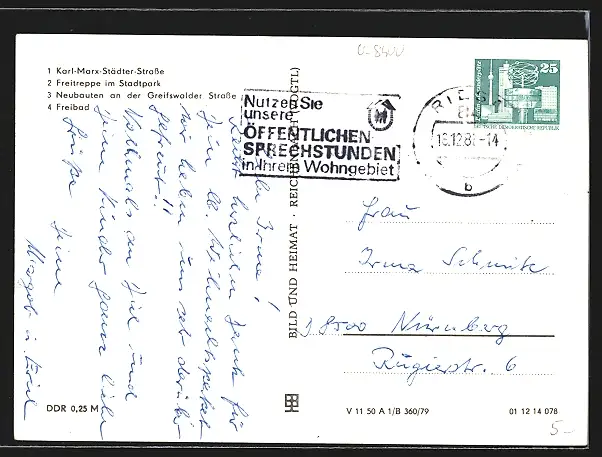 G 8400
1 Karl-Marx-Städter-Straße
2 Freitreppe im Stadtpark
3 Neubauten an der Greifswalder Straße
4 Freibad
Nutzen Sie
unsere
ÖFFENTLICHEN
SPRECHSTUNDEN
in Ihrem Wohngebiet
RIESA
16.12.8 -14
b
25
DEUTSCHE DEMOKRATISCHE REPUBLIK
Irma!
Recht herzlichen Dank für
Dein lb. Weihnachtspaket
wir haben uns sehr darüber
gefreut!!
Nochmals an Dich und
Deine Kinder ganz liebe
Grüße Deine
BILD UND HEIMAT · REICHENBACH (VOGTL)
Frau
Irma Schmitz
8500 Nürnberg
Rügierstr. 6
DDR 0,25 M
V 11 50 A 1/B 360/79
01 12 14 078
5-